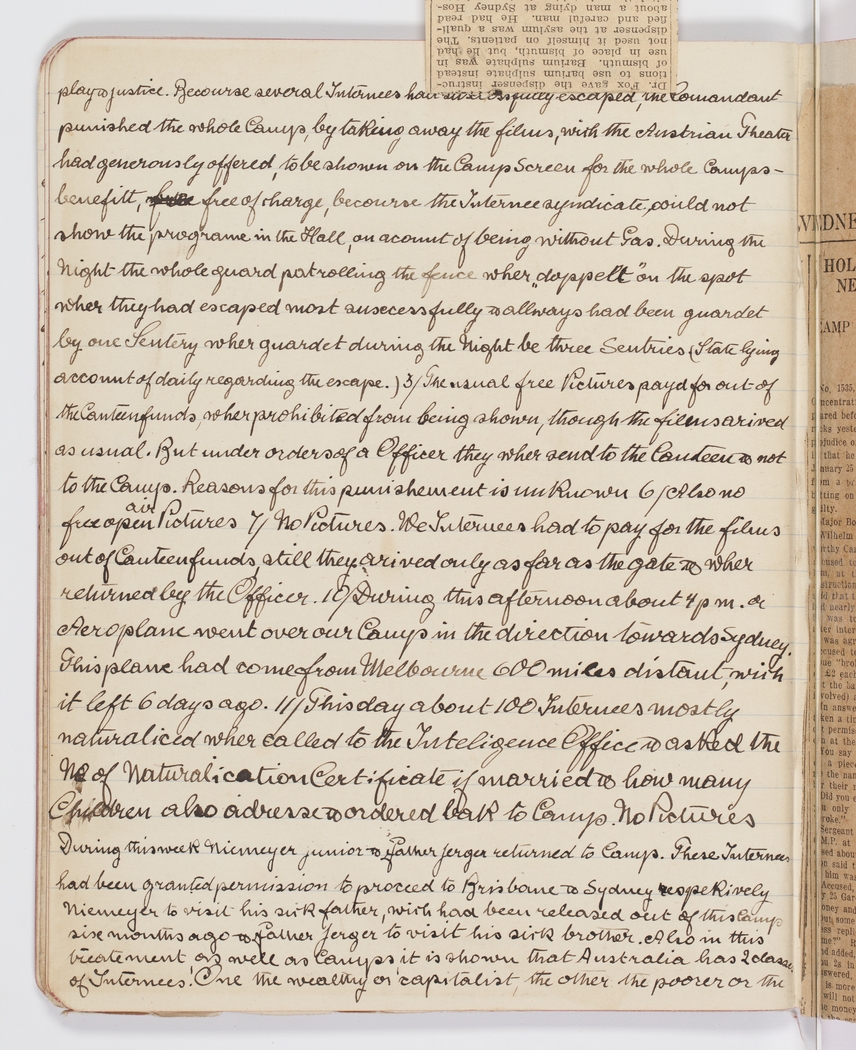 Dr. Fox gave the dispenser instruc-
tions to use barium sulphate instead
of bismuth. Barium sulphate was in
use in place of bismuth, but he had
not used it himself on patients. The
dispenser at the asylum was a quali-
fied and careful man. He had read
about a man dying at Sydney Hos-
play & justice. Becourse several Internees have escaped, the Comandant
punished the whole Camp, by taking away the films, wich the Austrian Theater
had generously offered, to be shown on the Camp Screen for the whole Camps-
benefitt, free of charge, becourse the Internee syndicate, could not
show the programe in the Hall, on acount of being without Gas. During the
Night the whole guard patrolling the fence wher "doppelt" on the spot
wher they had escaped most susecessfully & allways had been guardet
by one Sentery wher guardet during the Night be three Sentries (State lying
account of daily regarding the escape.) 5/ The usual free Pictures payd for out of
the Canteenfunds, wher prohibited from being shown, though the films arived
as usual. But under orders of a Officer they wher send to the Canteen & not
to the Camp. Reasons for this punishement is unknown 6/ Also no
free open air Pictures 7/ No Pictures. We Internees had to pay for the films
out of Canteenfunds, still they arived only as far as the gate & wher
returned by the Officer. 10/ During this afternoon about 4 p m. a
Aeroplane went over our Camp in the direction towards Sydney.
This plane had come from Melbourne 600 miles distant, wich
it left 6 days ago. 11/ This day about 100 Internees mostly
naturaliced wher called to the Inteligence Office & asked the
No of Naturalication Certificate if married & how many
Children also adresse & ordered bak to Camp. No Pictures
During this week Niemeyer junior & Father Jerger returned to Camp. These Internees
had been granted permission to proceed to Brisbane & Sydney respektively
Niemeyer to visit his sick father, wich had been released out of this Camp
sixe months ago & Father Jerger to visit his sick brother. Also in this
treatement as well as Camps it is shown that Australia has 2 classes
of Internees! One the wealthy or capitalist, the other the poorer or the
WEDNE
HOL
NE
CAMP
No. 1535,